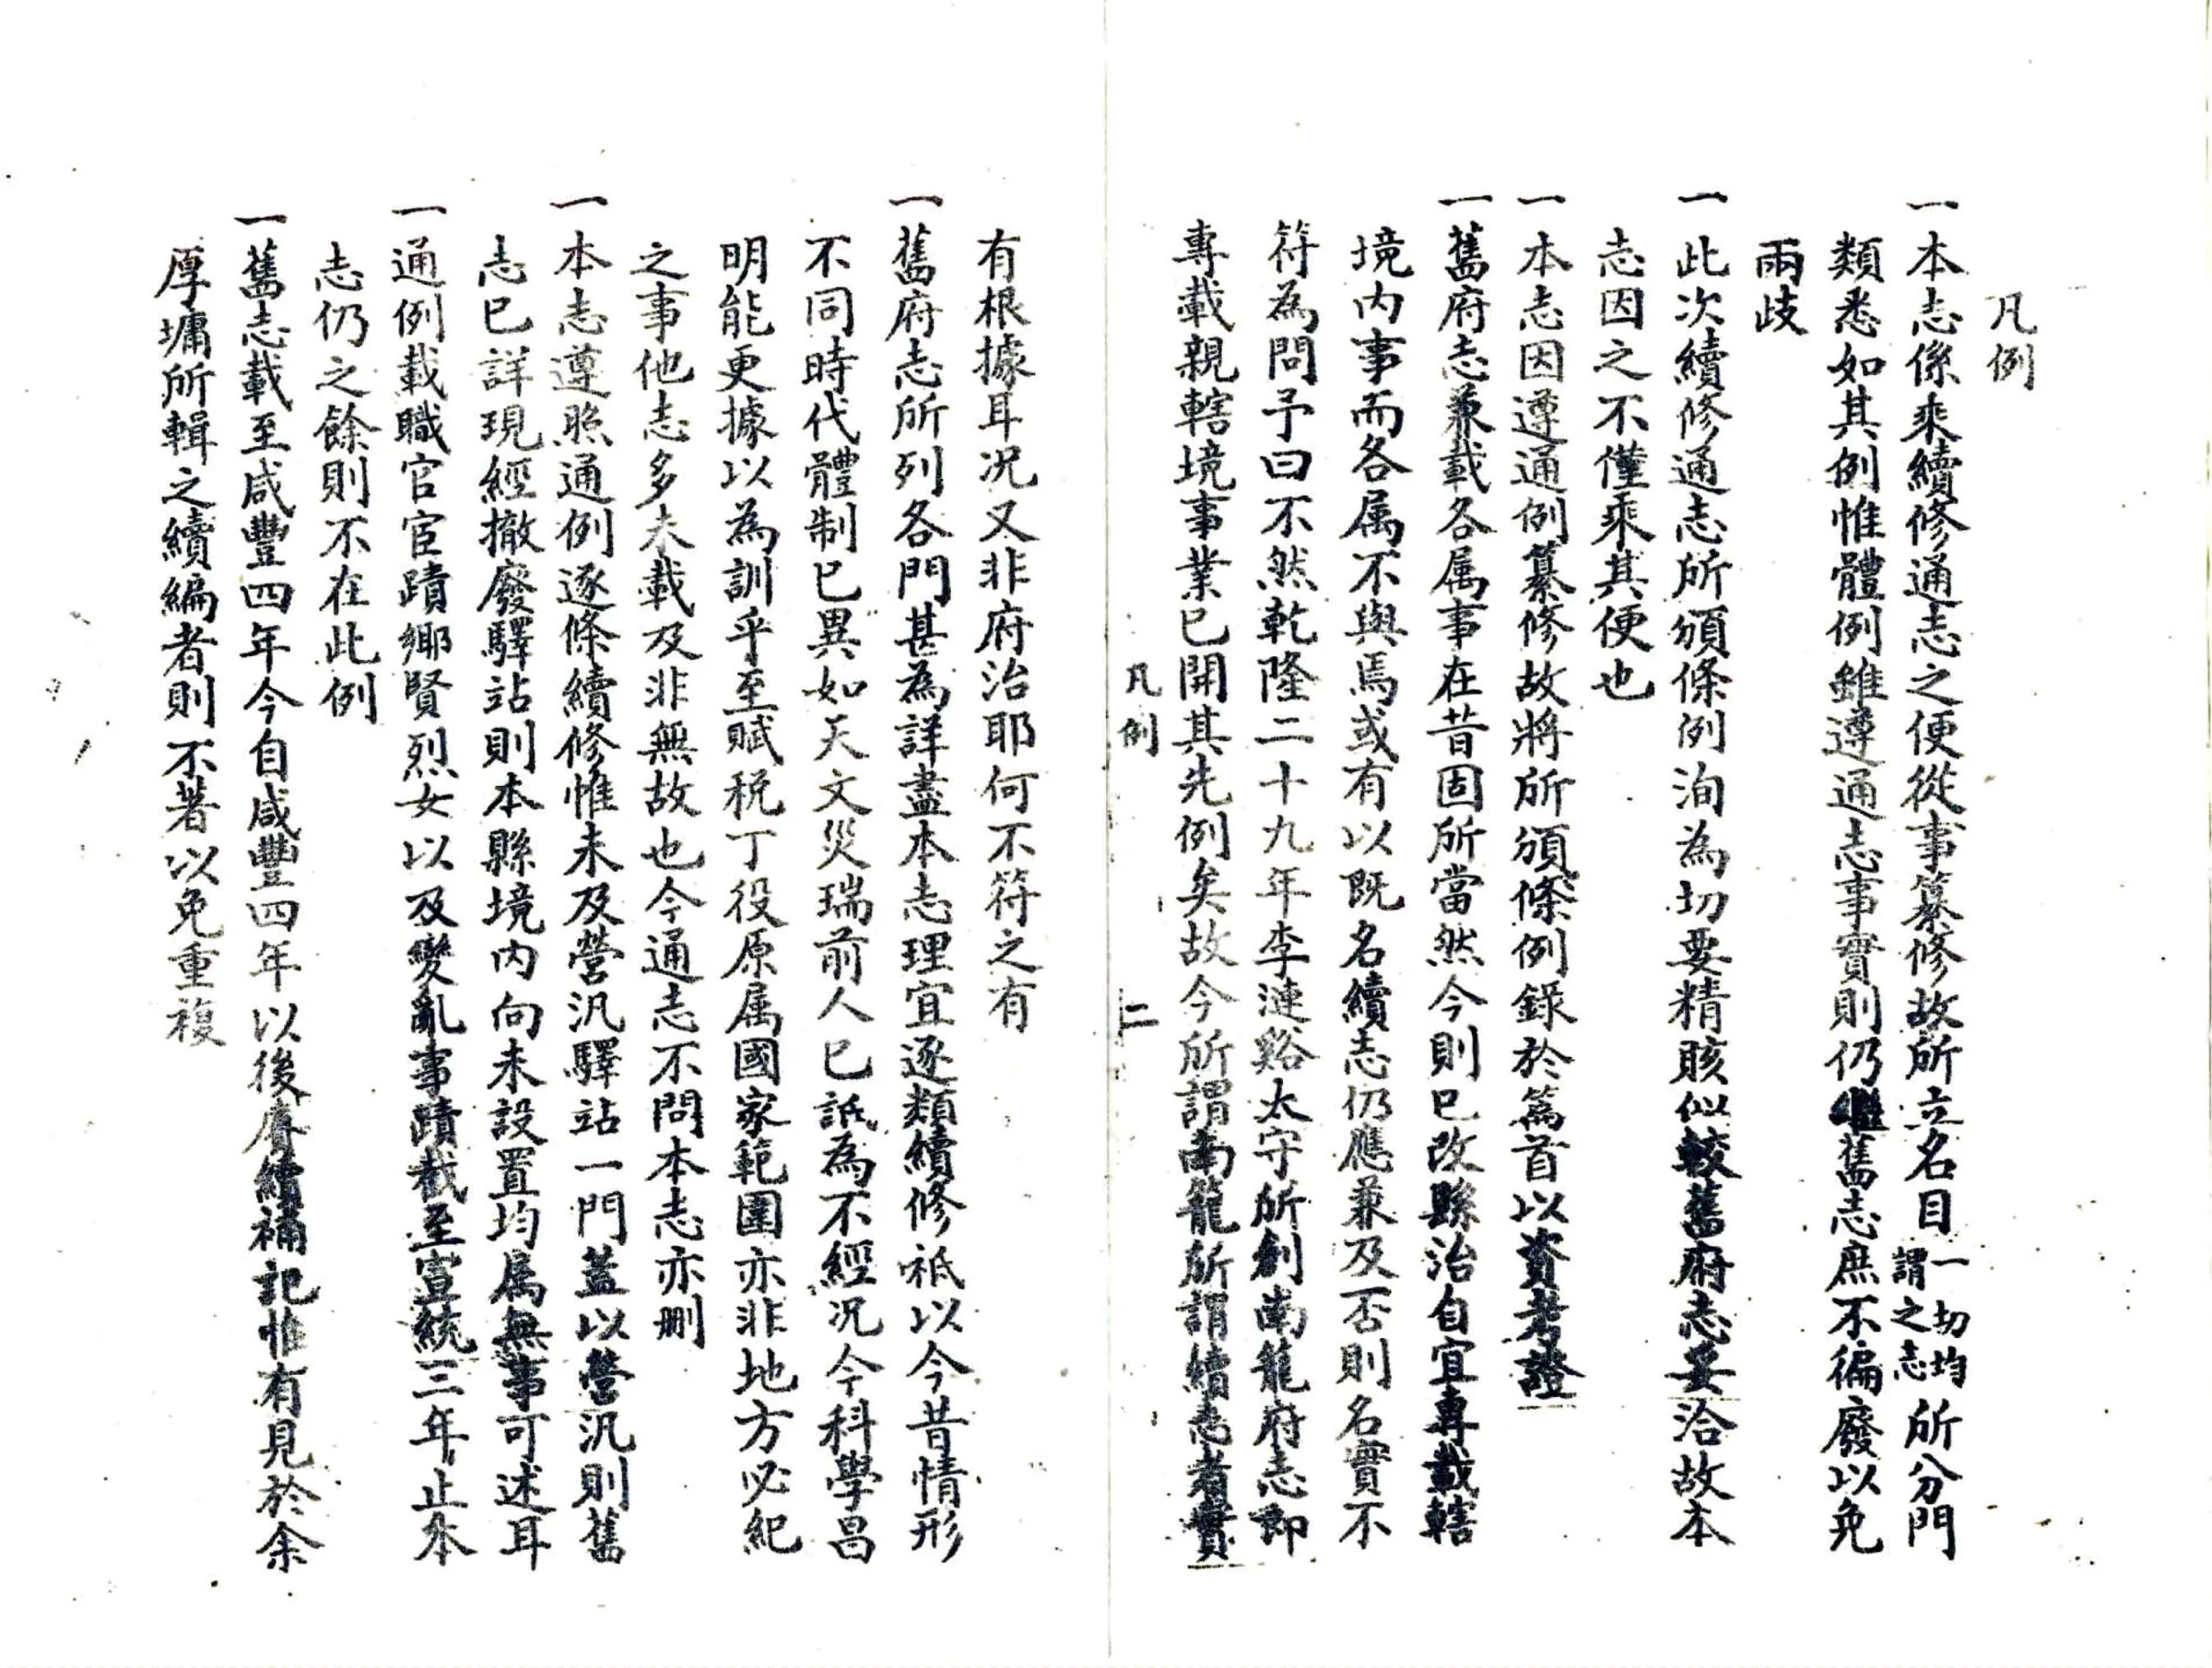 凡例
一本志係乘續修通志之便從事纂修故所立名目一切均謂之志所分門
類悉如其例惟體例雖遵通志事實則仍繼舊志庶不偏廢以免
兩歧
一此次續修通志所頒條例洵為切要精賅似較舊府志妥洽故本
志因之不僅乘其便也
一本志因遵通例纂修故將所頒條例錄於篇首以資考證
一舊府志兼載各属事在昔固所當然今則已改縣治自宜專載轄
境内事而各属不與焉或有以既名續志仍應兼及否則名實不
符為問予曰不然乾隆二十九年李漣谿太守所創南籠府志即
專載親轄境事業已開其先例矣故今所謂南籠所謂續志者實
凡例
二
有根據耳况又非府治耶何不符之有
一舊府志所列各門甚為詳盡本志理宜逐類續修祇以今昔情形
不同時代體制已異如天文災瑞前人已詆為不經况今科學昌
明能更據以為訓乎至賦税丁役原属國家範圍亦非地方必紀
之事他志多未載及非無故也今通志不問本志亦刪
一本志遵照通例逐條續修惟未及營汛驛站一門蓋以營汛則舊
志已詳現經撤廢驛站則本縣境内向未設置均属無事可述耳
一通例載職官宦蹟鄉賢烈女以及變亂事蹟截至宣統三年止本
志仍之餘則不在此例
一舊志載至咸豐四年今自咸豐四年以後賡續補記惟有見於余
厚墉所輯之續編者則不著以免重複